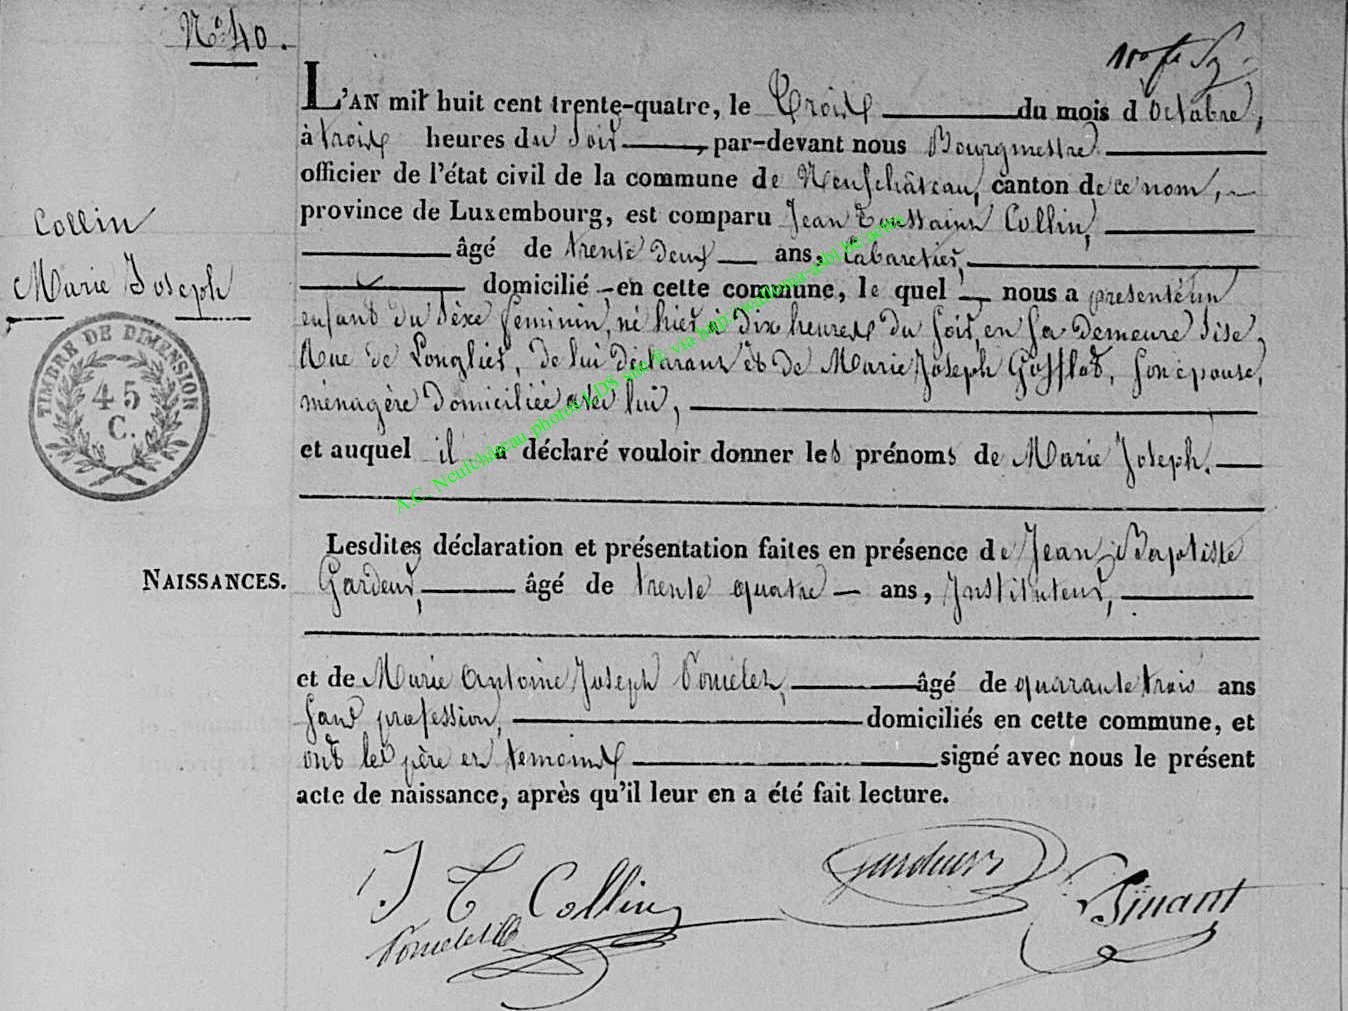 N.º 40.
L'AN mil huit cent trente-quatre, le Trois du mois d'Octobre,
à trois heures du Soir, par-devant nous Bourgmestre
officier de l'état civil de la commune de Neufchâteau, canton de ce nom,
province de Luxembourg, est comparu Jean Toussaint Collin,
âgé de trente deux ans, Cabaretier,
domicilié en cette commune, le quel nous a presenté un
enfant du Sèxe feminin, né hier à Dix heures du Soir, en Sa Demeure Sise,
Rue de Longlier, de lui Déclarant et de Marie Joseph Gofflot, Son épouse,
ménagère Domiciliée avec lui,
et auquel il a déclaré vouloir donner les prénoms de Marie Joseph.
Collin
Marie Joseph
TIMBRE DE DIMENSION
45
C.
NAISSANCES.
Lesdites déclaration et présentation faites en présence de Jean Baptiste
Gardeur, âgé de trente quatre ans, Instituteur,
et de Marie Antoine Joseph âgé de quarante trois ans
Sans profession, domiciliés en cette commune, et
ont les père et temoins signé avec nous le présent
acte de naissance, après qu'il leur en a été fait lecture.
J T Collin
Gardeur
A.C. Neufchâteau photos LDS site & via http://wallonia-asbl.be actes